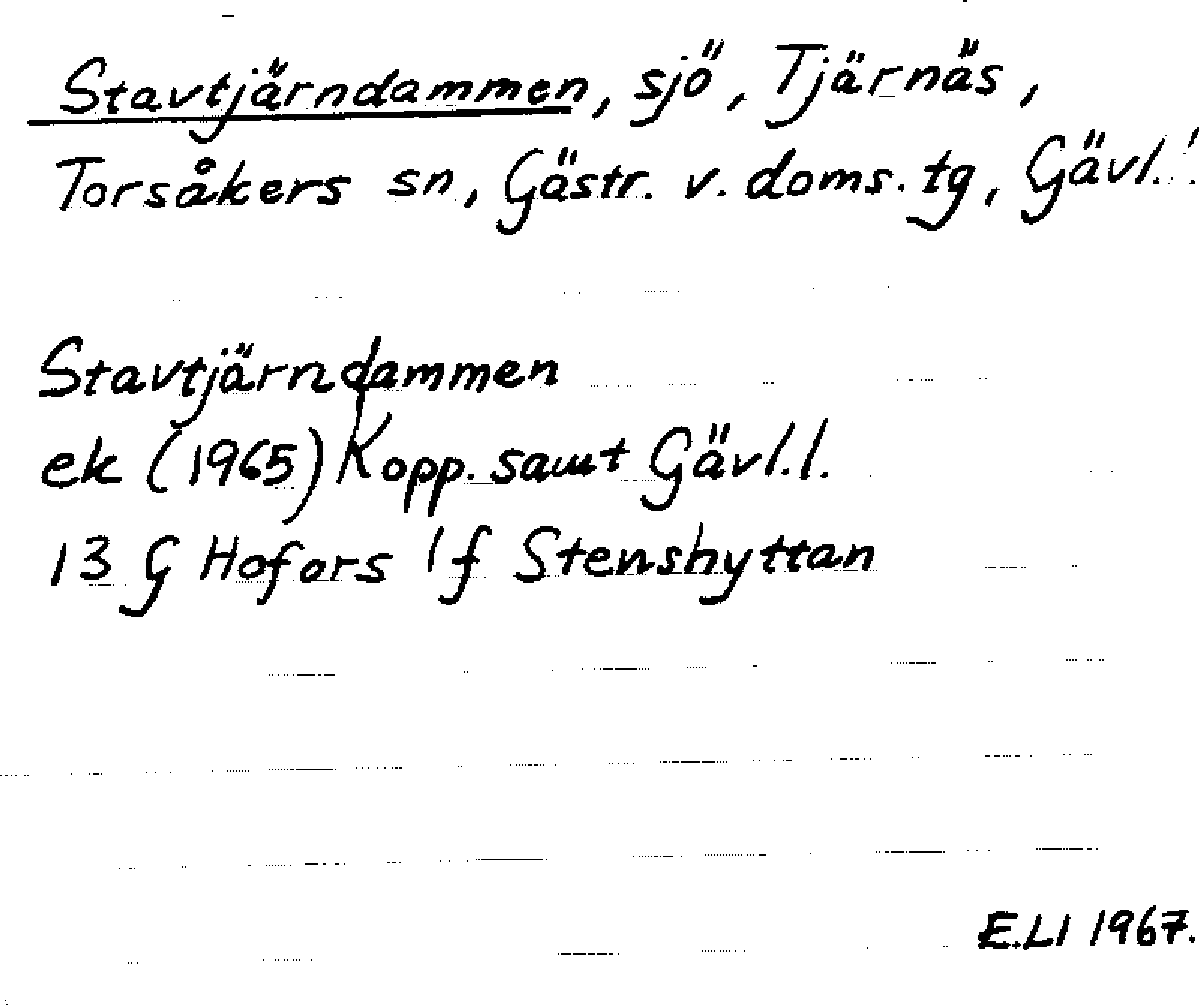 Stavtjärndammen, sjö, Tjärnäs,
Torsåkers sn, Gästr. v. doms. tg, Gävl. l.
Stavtjärndammen
ek (1965) Kopp. samt Gävl. l.
13 G Hofors 1f Stenshyttan
E.LI 1967.